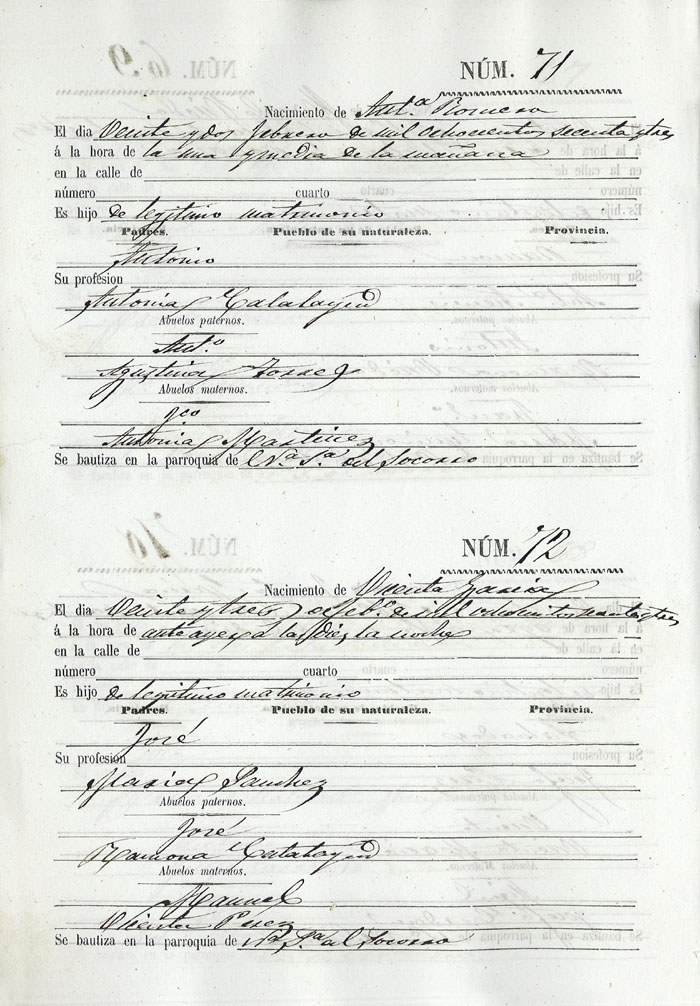 NÚM. 71
Nacimiento de Ant.ª Romero
El dia Veinte y dos febrero de mil ochocientos secenta y tres
á la hora de la una y media de la mañana
en la calle de
número cuarto
Es hijo de legitimo matrimonio
Padres. Pueblo de su naturaleza. Provincia.
Antonio
Su profesion
Antonia Calatayud
Abuelos paternos.
Ant.o
Agustina Torres
Abuelos maternos.
Antonia Martinez
Se bautiza en la parroquia de N.ª S.ª del Socorro
NÚM. 72
Nacimiento de Vicenta Garcia
El dia Veinte y tres de feb.o de mil ochocientos y tres
á la hora de ante ayer a las diez la noche
en la calle de
número cuarto
Es hijo de legitimo matrimonio
Padres. Pueblo de su naturaleza. Provincia.
José
Su profesion
Maria Sanchez
Abuelos paternos.
José
Ramona Calatayud
Abuelos maternos.
Manuel
Vicenta Perez
Se bautiza en la parroquia de N.ª S.ª del Socorro